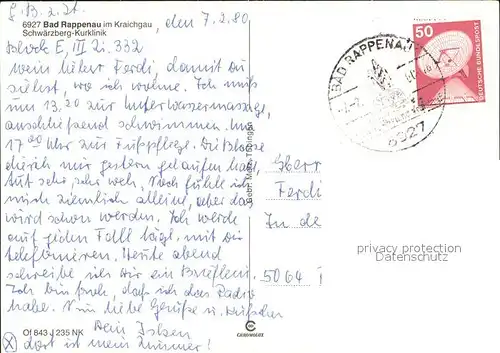 6927 Bad Rappenau im Kraichgau
Schwärzberg-Kurklinik
, den 7.2.80
Block E, III Zi. 332
Mein lieber Ferdi, damit du
siehst, wo ich wohne. Ich muß
um 13.20 zur Unterwassermassage,
anschließend schwimmen. Um
17 00 Uhr zur Fußpflege. Die Blase
die ich mir gestern gelaufen habe,
tut sehr, sehr weh. Noch fühle ich
mich ziemlich allein, aber das
wird schon werden. Ich werde
auf jeden Fall tägl. mit Dir
telefonieren. Heute abend
schreibe ich Dir ein Brieflein.
Ich bin froh, daß ich das Radio
habe. Nun liebe Grüße u. Küßchen
Dein
dort ist mein Zimmer!
Of 843 J 235 NK
Gebr. Metz, Tübingen
CEKADEWOGE
BAD RAPPENAU
6927
50
DEUTSCHE BUNDESPOST
Herr
Ferdi
In de
5064
privacy protection
DatenSchutz